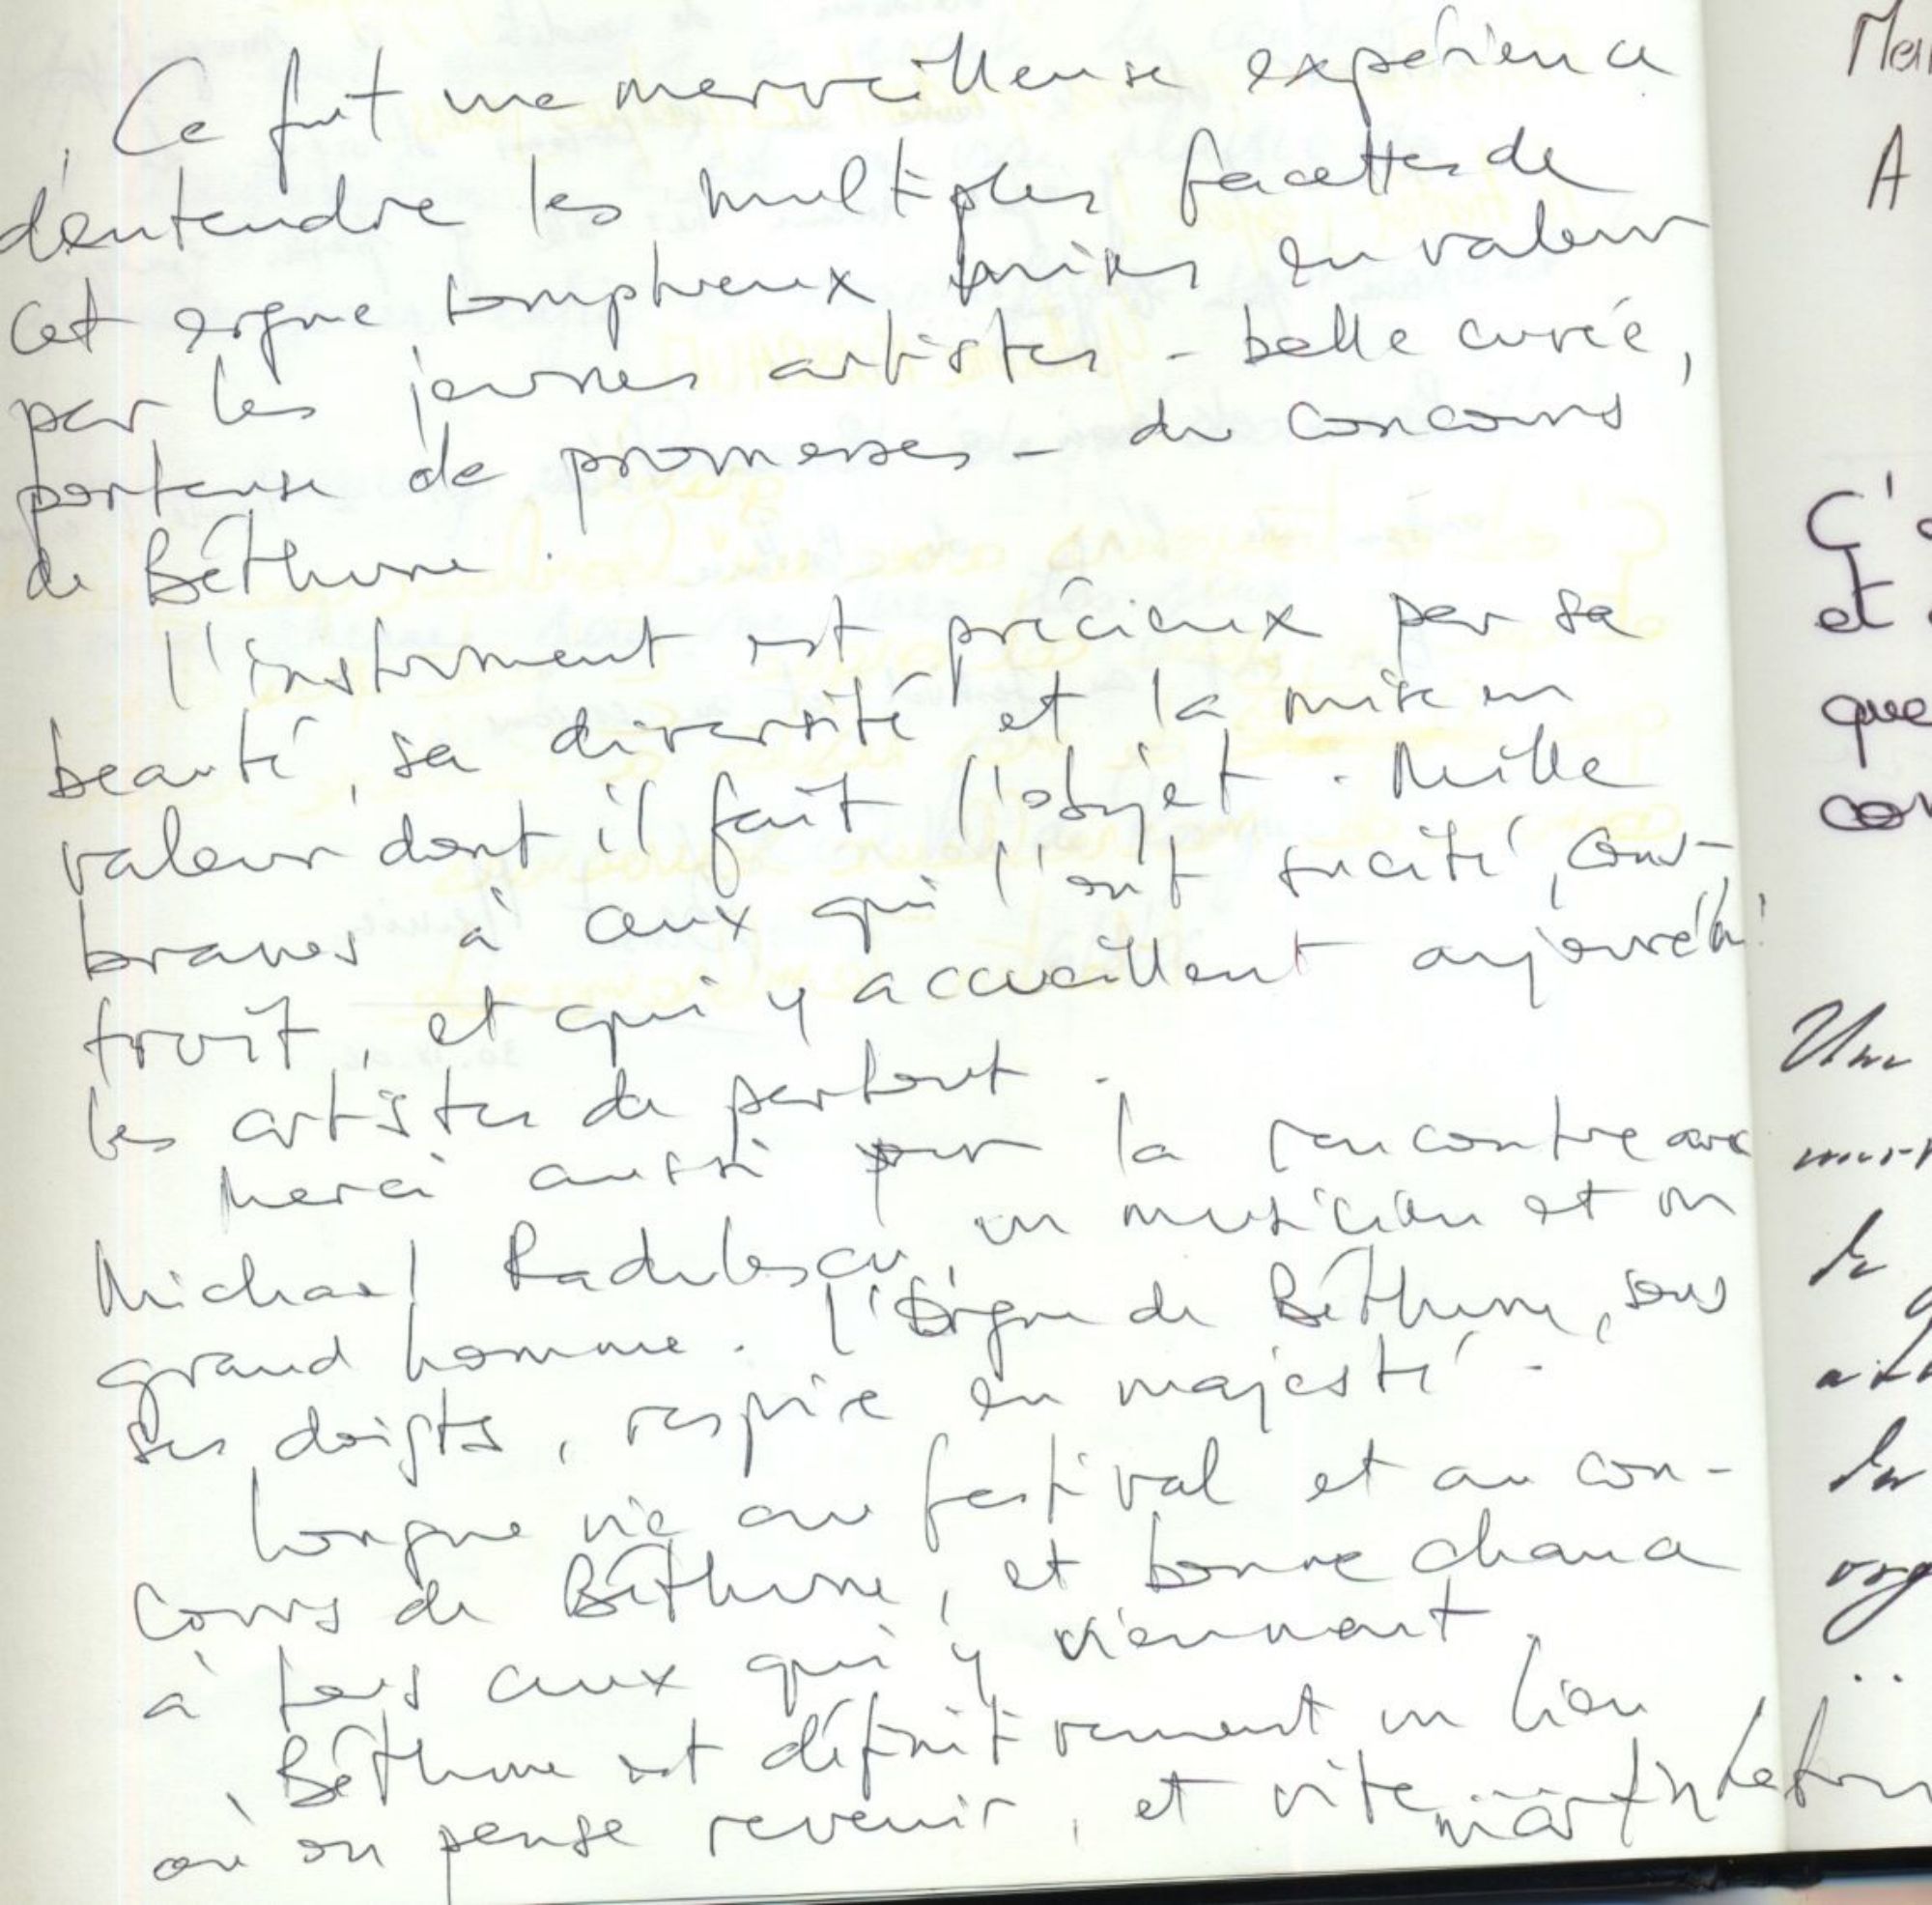 Ce fut une merveilleuse expérience
d'entendre les multiples facettes de
cet orgue somptueux mises en valeur
par les jeunes artistes - belle cuvée,
porteuse de promesses - du concours
de Béthune.
L'instrument est précieux par sa
beauté, sa diversité et la mise en
valeur dont il fait l'objet. Mille
bravos à ceux qui l'ont suscité, cons-
truit, et qui y accueillent aujourd'hui
les artistes de partout.
Merci aussi pour la rencontre avec
Michael Radulescu, un musicien et un
grand homme. L'Orgue de Béthune, sous
ses doigts, respire en majesté.
Longue vie au festival et au con-
cours de Béthune, et bonne chance
à tous ceux qui y viennent.
Béthune est définitivement un lieu
où on pense revenir, et vite...
Martin
Mer
A
C'
et
que
con
Une
la